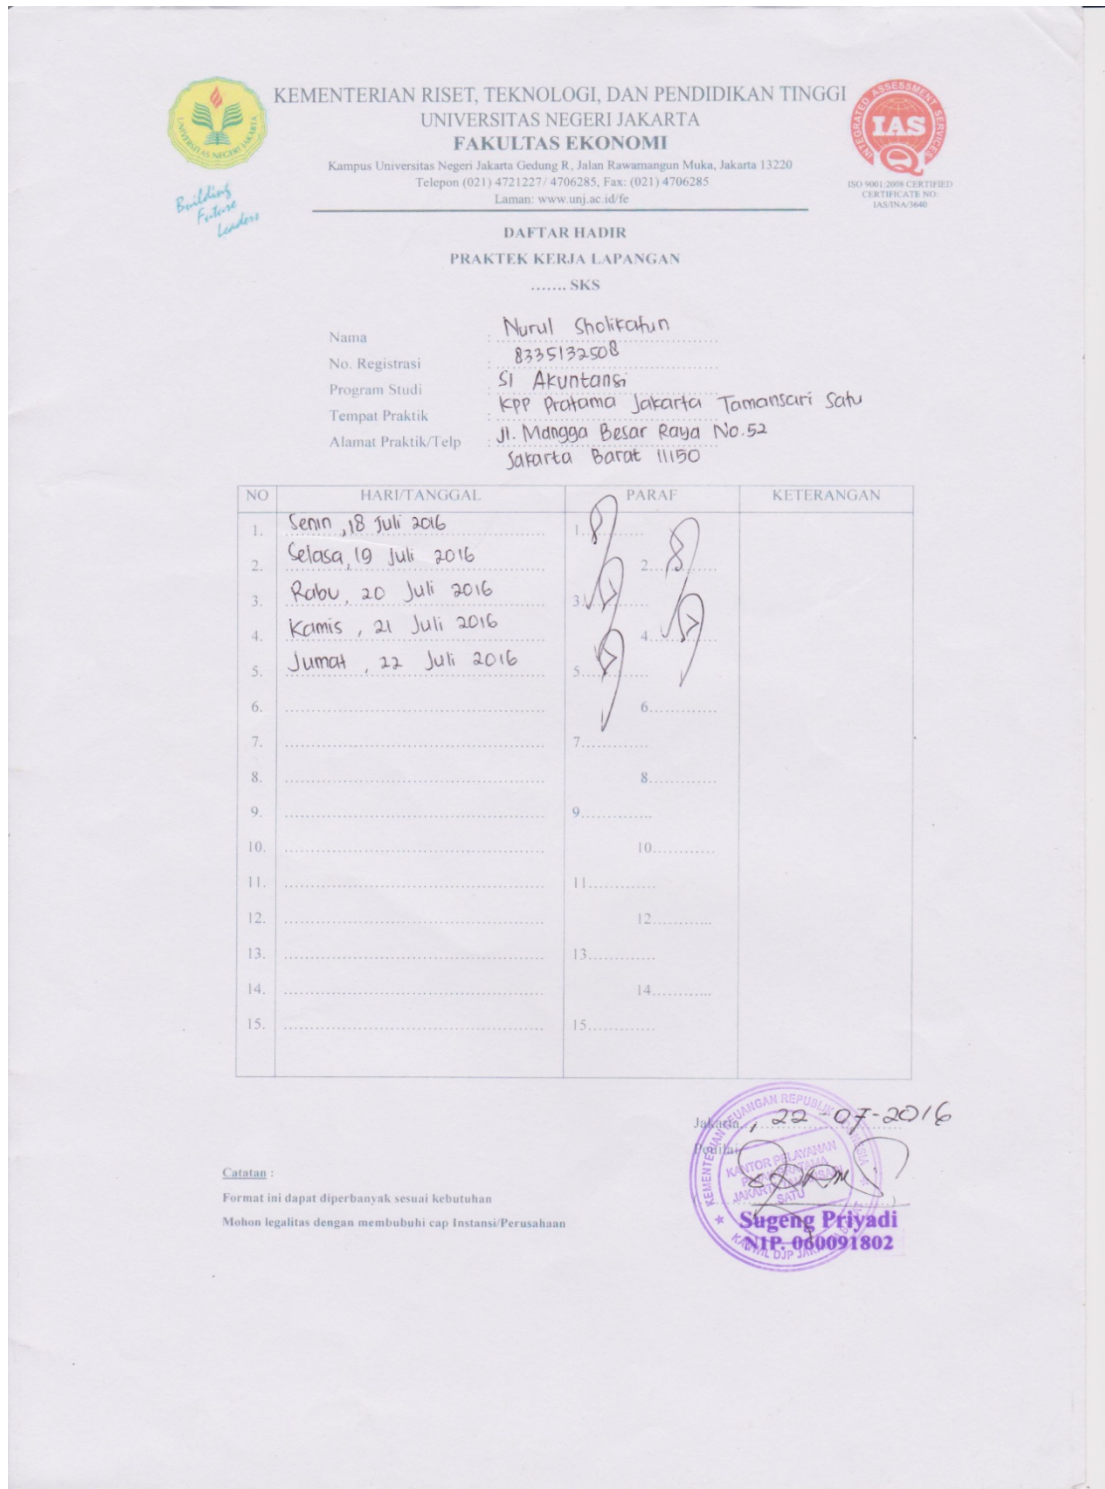 KEMENTERIAN RISET, TEKNOLOGI, DAN PENDIDIKAN TINGGI
UNIVERSITAS NEGERI JAKARTA
FAKULTAS EKONOMI
Kampus Universitas Negeri Jakarta Gedung R, Jalan Rawamangun Muka, Jakarta 13220
Telepon (021) 4721227/ 4706285, Fax: (021) 4706285
Laman: www.unj.ac.id/fe
UNIVERSITAS NEGERI JAKARTA
Building
Future
Leaders
INTEGRATED ASSESSMENT SERVICES
IAS
Q
ISO 9001:2008 CERTIFIED
CERTIFICATE NO:
IAS/INA/3640
DAFTAR HADIR
PRAKTEK KERJA LAPANGAN
....... SKS
Nama : Nurul Sholikatun
No. Registrasi : 8335132508
Program Studi : S1 Akuntansi
Tempat Praktik : KPP Pratama Jakarta Tamansari Satu
Alamat Praktik/Telp : Jl. Mangga Besar Raya No.52
Jakarta Barat 11150
NO HARI/TANGGAL PARAF KETERANGAN
1. Senin, 18 Juli 2016 1.
2. Selasa, 19 Juli 2016 2.
3. Rabu, 20 Juli 2016 3.
4. Kamis, 21 Juli 2016 4.
5. Jumat, 22 Juli 2016 5.
6. 6.
7. 7.
8. 8.
9. 9.
10. 10.
11. 11.
12. 12.
13. 13.
14. 14.
15. 15.
Jakarta, 22-07-2016
Penilai
KEMENTERIAN KEUANGAN REPUBLIK INDONESIA
KANTOR PELAYANAN
JAKARTA
SATU
KANWIL DJP
Sugeng Priyadi
NIP. 060091802
Catatan :
Format ini dapat diperbanyak sesuai kebutuhan
Mohon legalitas dengan membubuhi cap Instansi/Perusahaan